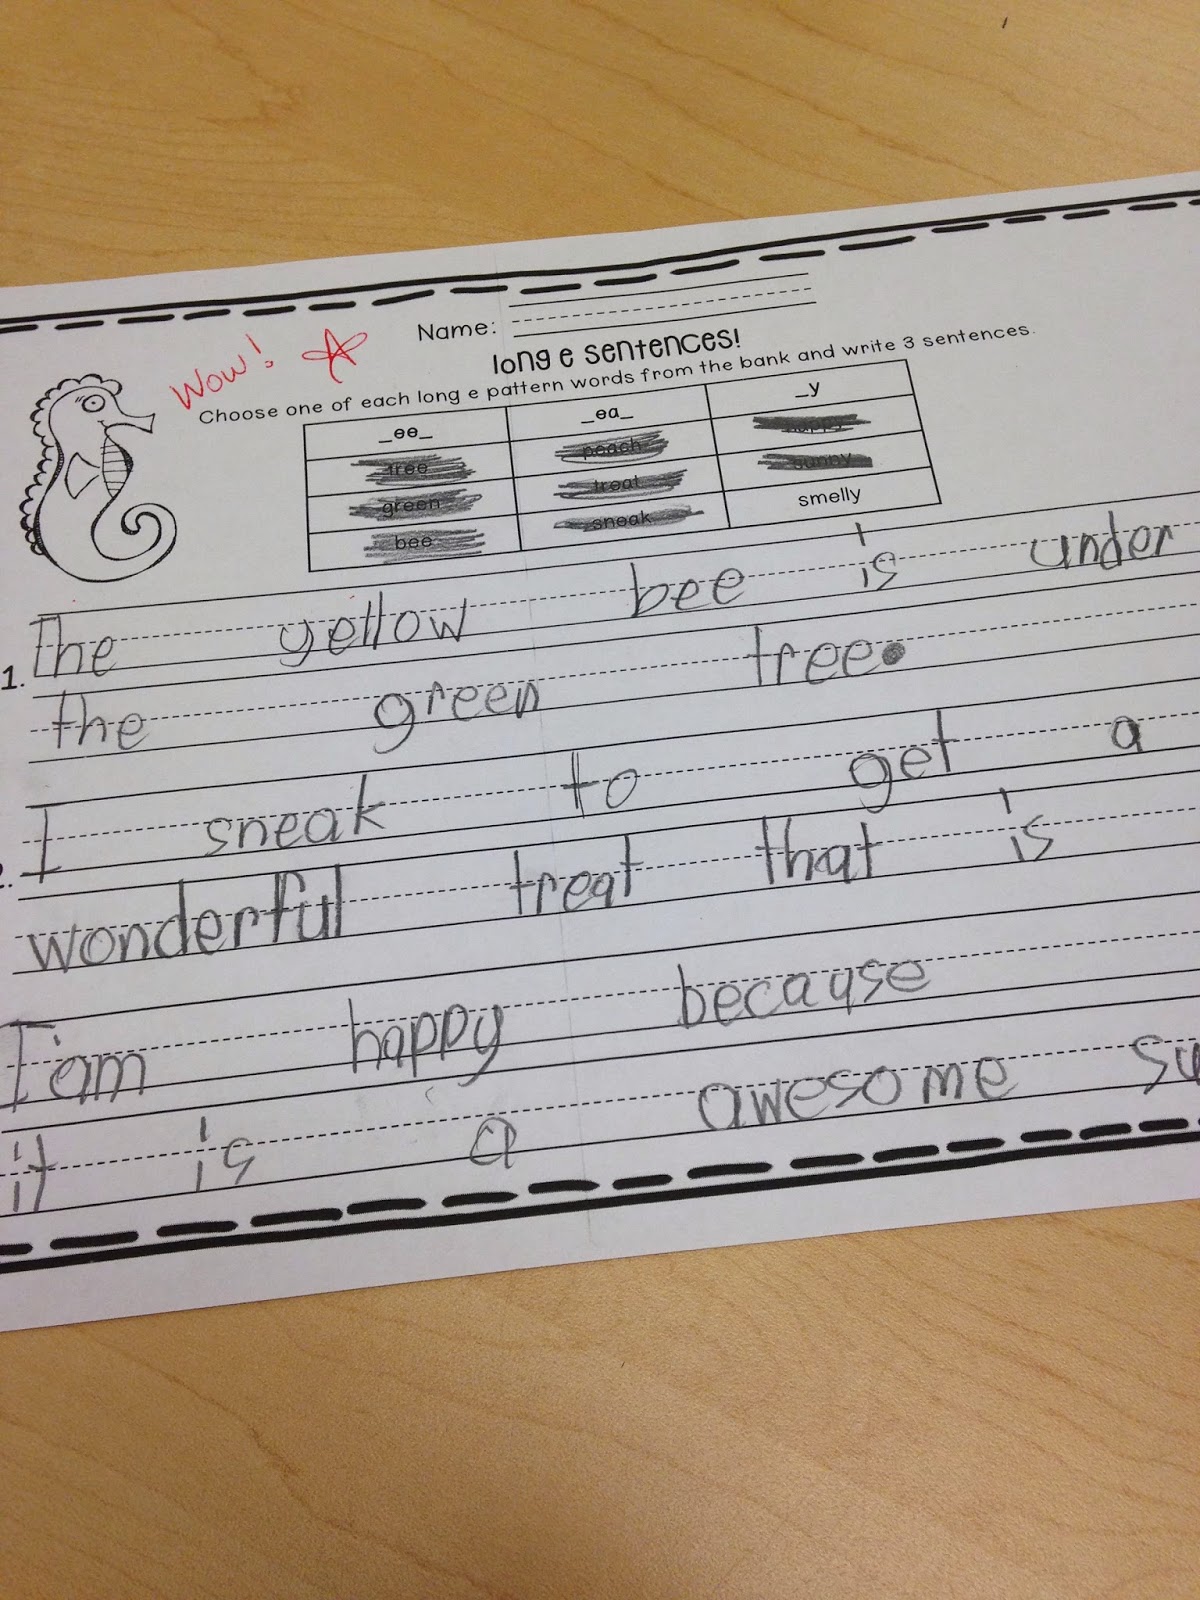 Name:
Wow!
long e sentences!
Choose one of each long e pattern words from the bank and write 3 sentences.
_ee_ _ea_ _y
tree peach happy
green treat sunny
bee sneak smelly
1. The yellow bee is under
the green tree.
I sneak to get a
wonderful treat that is
I am happy because
it is a awesome su